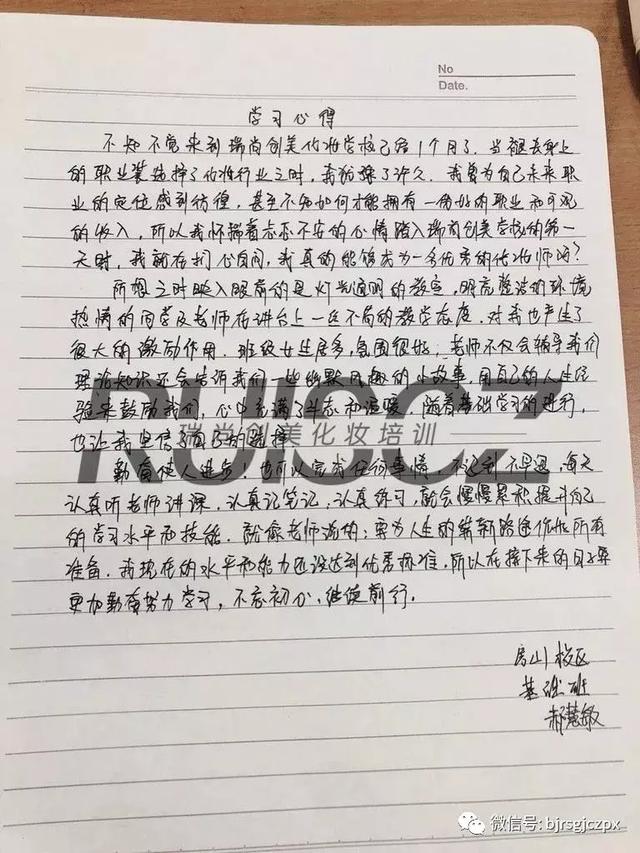 No
Date.
学习心得
不知不觉来到瑞尚创美化妆学校已经1个月了。当褪去身上
的职业装选择了化妆行业之时,我犹豫了许久。我曾为自己未来职
业的定位感到彷徨,甚至不知如何才能拥有一份好的职业和可观
的收入,所以我怀揣着忐忑不安的心情踏入瑞尚创美学校的第一
天时,我就在扪心自问,我真的能够成为一名优秀的化妆师吗?
所想之时映入眼帘的是灯光通明的教室,明亮整洁的环境
热情的同学及老师在讲台上一丝不苟的教学态度,对我也产生了
很大的激励作用。班级女生居多,氛围很好,老师不仅会辅导我们
理论知识还会告诉我们一些幽默风趣的小故事,用自己的人生经
验来鼓励我们,心中充满了斗志和温暖。随着基础学习的进行,
也让我坚信了自己的选择
勤奋使人进步!也可以完成任何事情,不迟到不早退,每天
认真听老师讲课,认真记笔记,认真练习,就会慢慢累积提升自己
的学习水平和技能。就像老师说的:要为人生的崭新路途作出所有
准备。我现在的水平和能力还没达到优秀标准,所以在接下来的日子要
更加勤奋努力学习,不忘初心,继续前行。
房山校区
基础班
郝慧敏
RUISCZ
瑞尚创美化妆培训
微信号: bjrsgjczpx